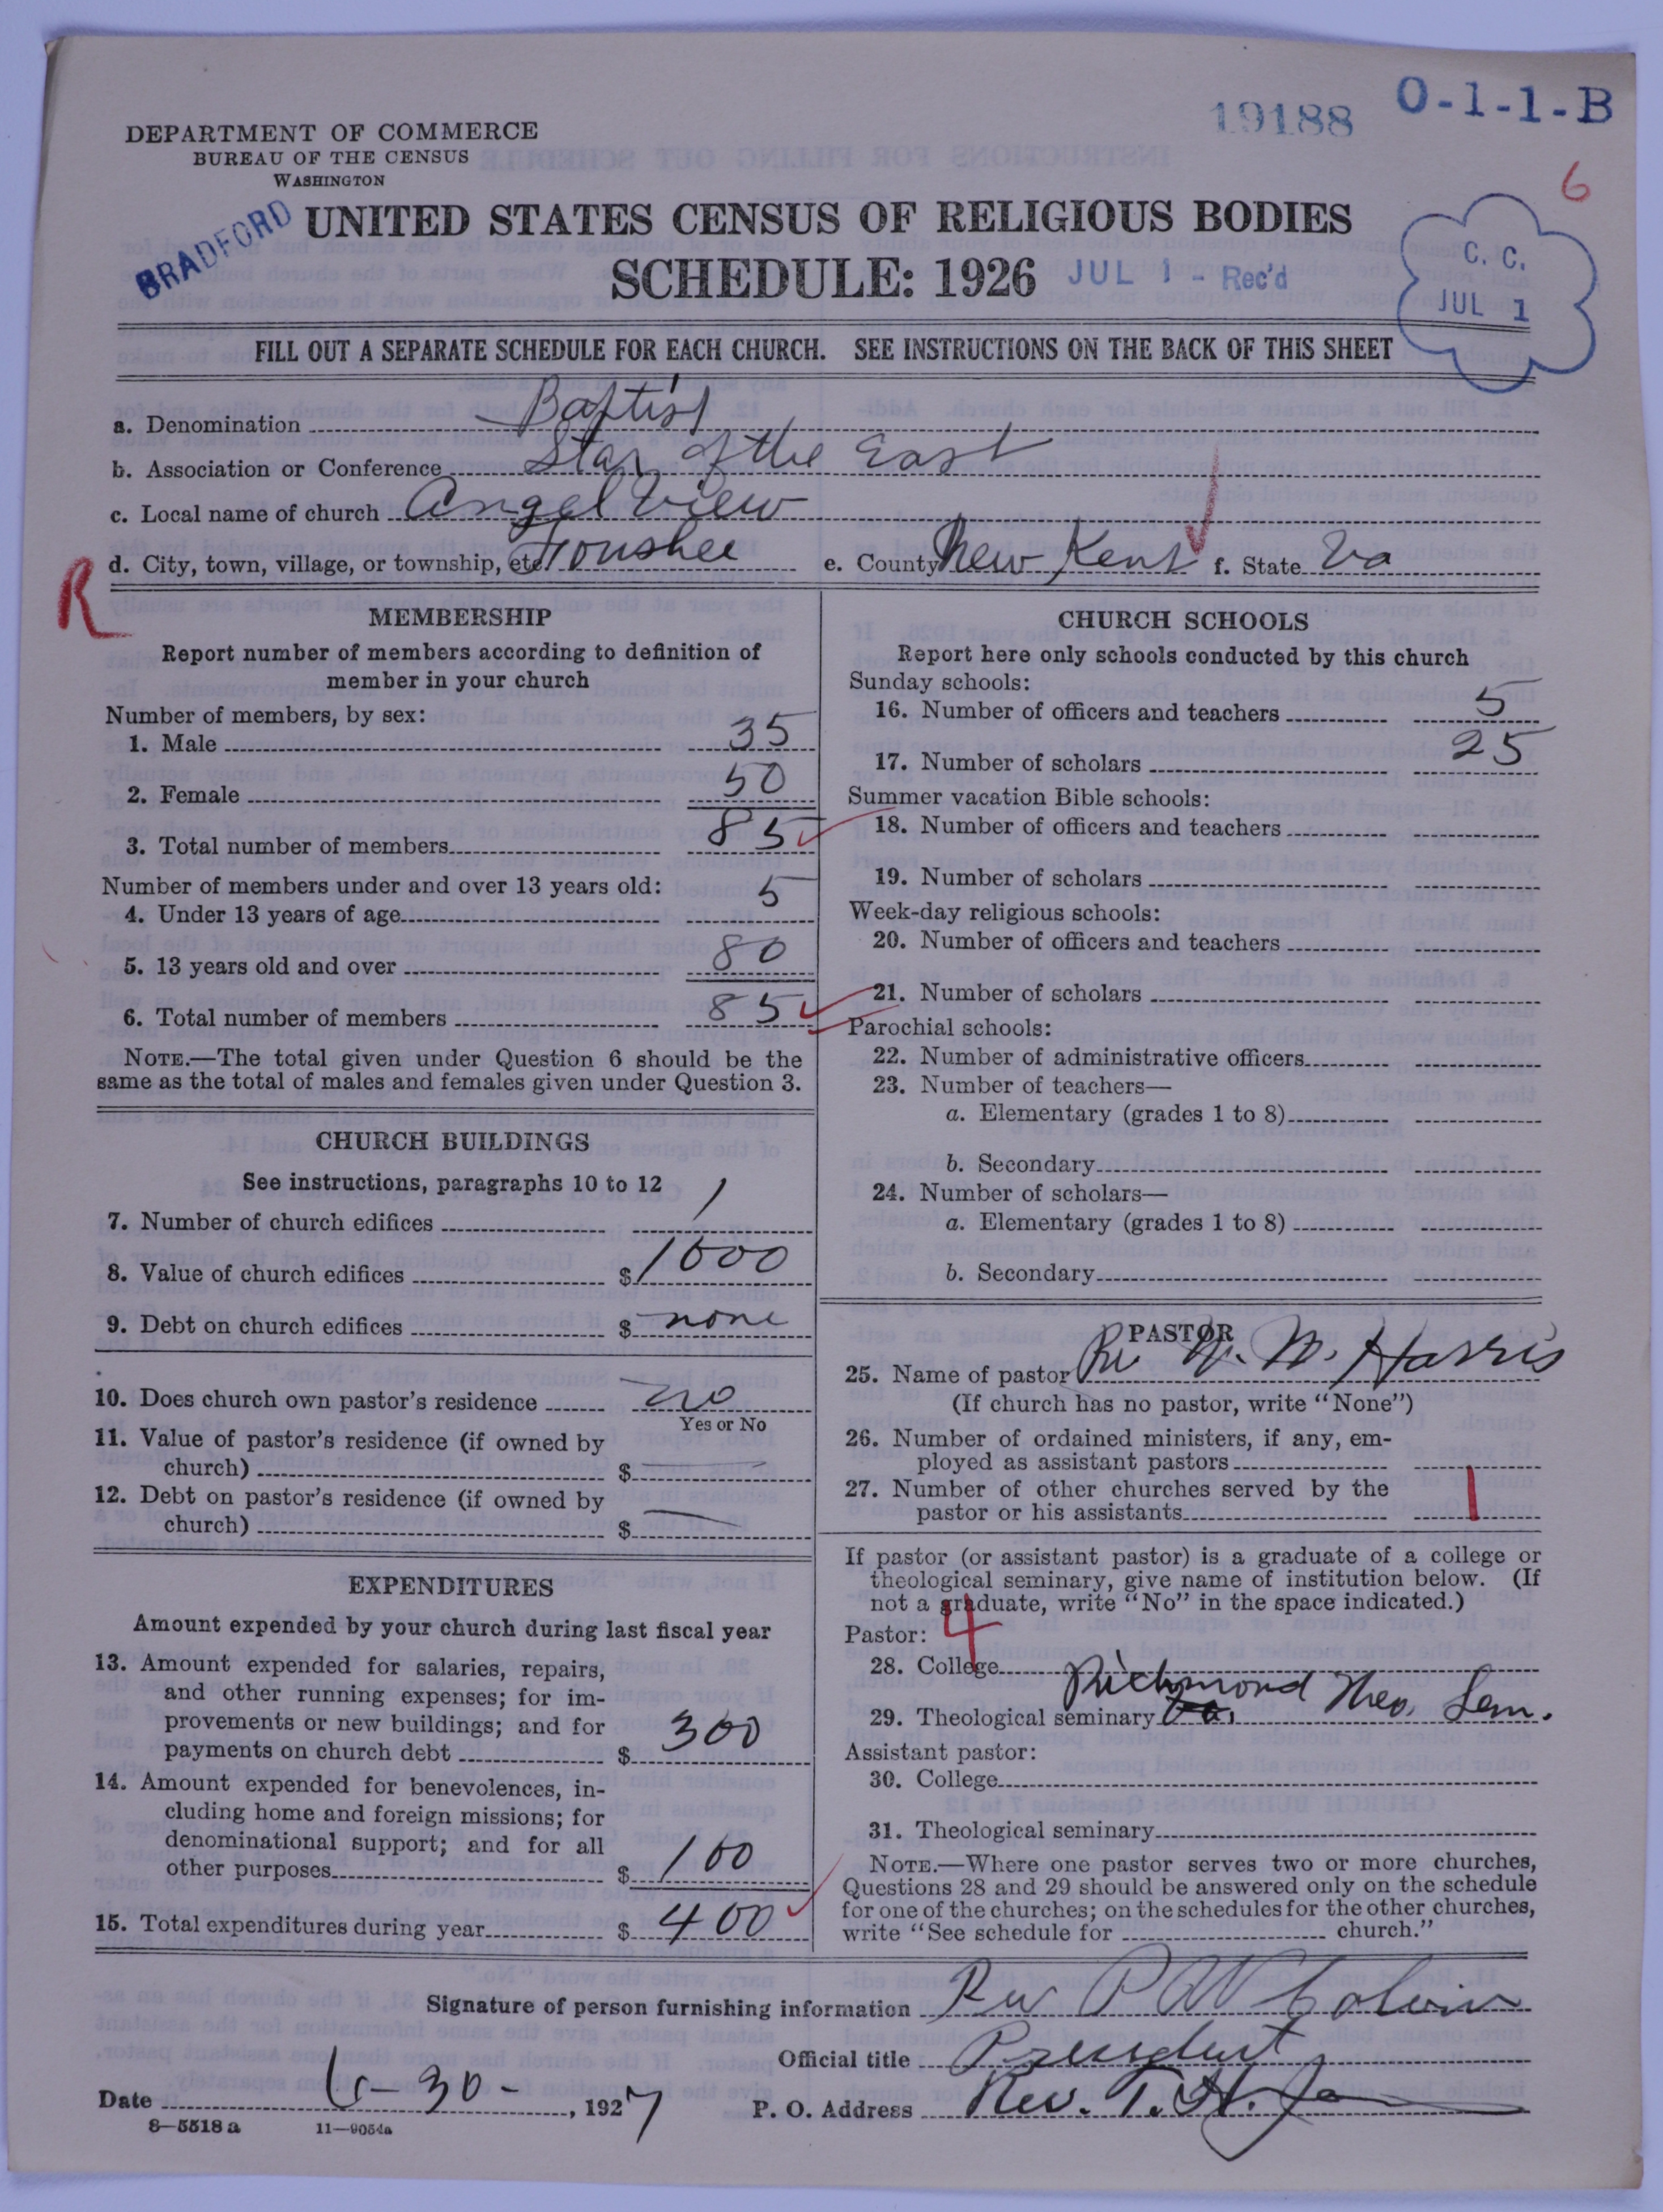 19188 O-1-1-B
DEPARTMENT OF COMMERCE
BUREAU OF THE CENSUS
WASHINGTON
6
BRADFORD
UNITED STATES CENSUS OF RELIGIOUS BODIES
SCHEDULE: 1926 JUL 1 - Rec'd
C. C.
JUL 1
FILL OUT A SEPARATE SCHEDULE FOR EACH CHURCH. SEE INSTRUCTIONS ON THE BACK OF THIS SHEET
a. Denomination Baptist
b. Association or Conference Star of the East
c. Local name of church Angel View
d. City, town, village, or township, etc. Toushee e. County New Kent f. State Va
R
MEMBERSHIP
Report number of members according to definition of
member in your church
Number of members, by sex:
1. Male 35
2. Female 50
3. Total number of members 85
Number of members under and over 13 years old:
4. Under 13 years of age 5
5. 13 years old and over 80
6. Total number of members 85
NOTE.—The total given under Question 6 should be the
same as the total of males and females given under Question 3.
CHURCH BUILDINGS
See instructions, paragraphs 10 to 12
7. Number of church edifices 1
8. Value of church edifices $ 1000
9. Debt on church edifices $ none
10. Does church own pastor's residence no
Yes or No
11. Value of pastor's residence (if owned by
church) $ —
12. Debt on pastor's residence (if owned by
church) $ —
EXPENDITURES
Amount expended by your church during last fiscal year
13. Amount expended for salaries, repairs,
and other running expenses; for im-
provements or new buildings; and for
payments on church debt $ 300
14. Amount expended for benevolences, in-
cluding home and foreign missions; for
denominational support; and for all
other purposes $ 100
15. Total expenditures during year $ 400
CHURCH SCHOOLS
Report here only schools conducted by this church
Sunday schools:
16. Number of officers and teachers 5
17. Number of scholars 25
Summer vacation Bible schools:
18. Number of officers and teachers
19. Number of scholars
Week-day religious schools:
20. Number of officers and teachers
21. Number of scholars
Parochial schools:
22. Number of administrative officers
23. Number of teachers—
a. Elementary (grades 1 to 8)
b. Secondary
24. Number of scholars—
a. Elementary (grades 1 to 8)
b. Secondary
PASTOR
25. Name of pastor W. M. Harris
(If church has no pastor, write "None")
26. Number of ordained ministers, if any, em-
ployed as assistant pastors
27. Number of other churches served by the
pastor or his assistants 1
If pastor (or assistant pastor) is a graduate of a college or
theological seminary, give name of institution below. (If
not a graduate, write "No" in the space indicated.)
4
Pastor:
28. College
29. Theological seminary Richmond Theo. Sem.
Assistant pastor:
30. College
31. Theological seminary
NOTE.—Where one pastor serves two or more churches,
Questions 28 and 29 should be answered only on the schedule
for one of the churches; on the schedules for the other churches,
write "See schedule for church."
Signature of person furnishing information Rev
Official title President
Date 6-30-, 1927 P. O. Address Rev. T. H.
8—5518 a 11—9054a